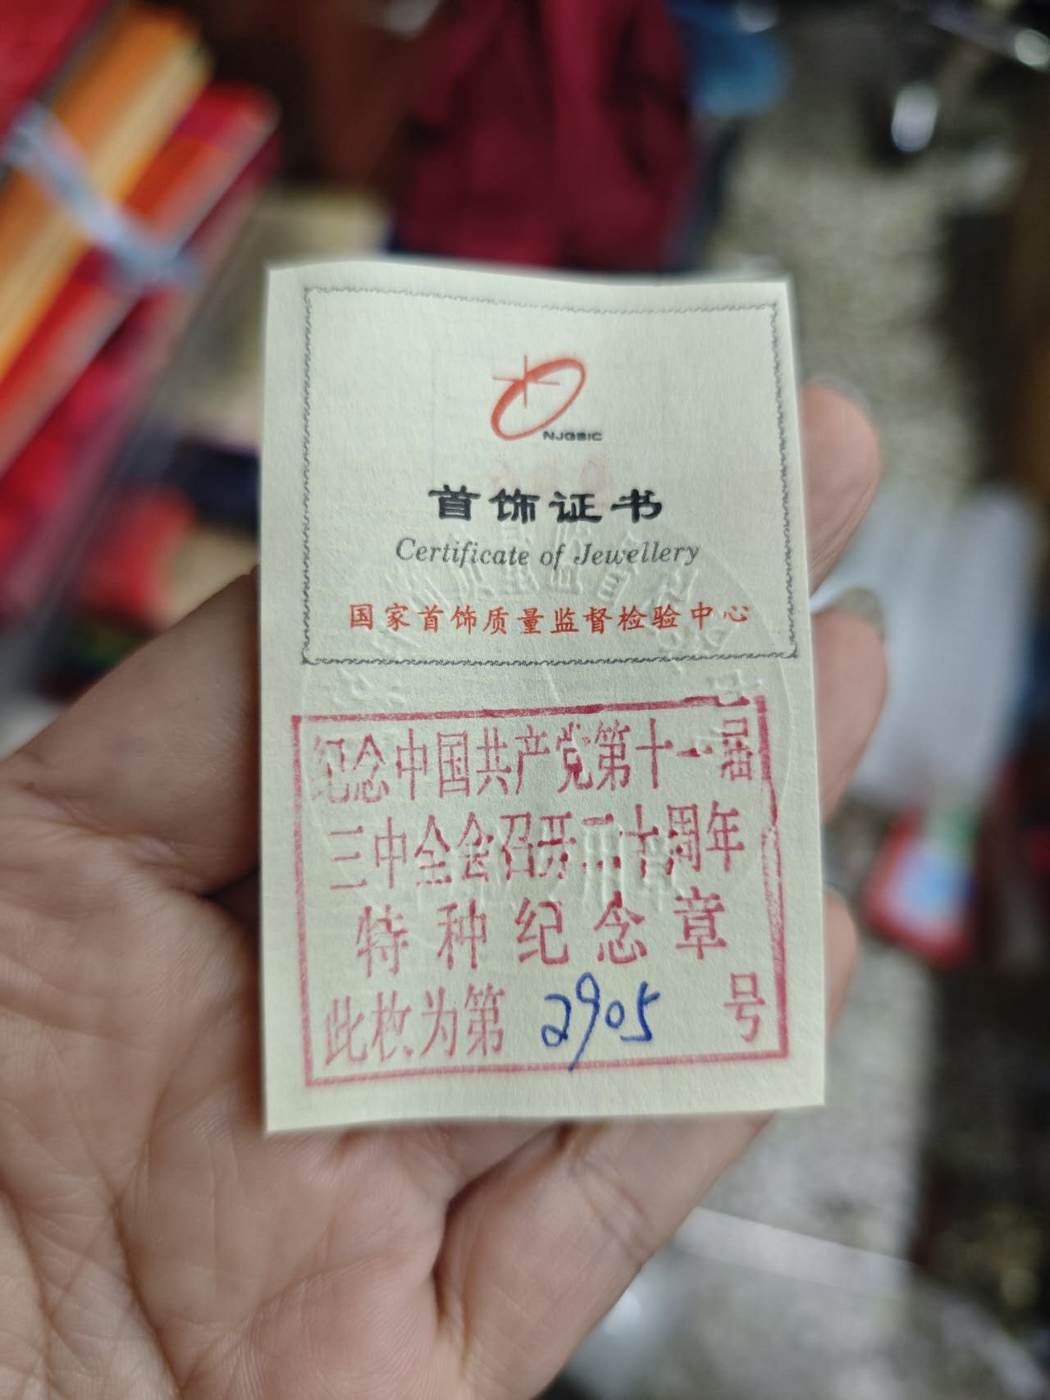 NJQSIC
首饰证书
Certificate of Jewellery
国家首饰质量监督检验中心
纪念中国共产党第十一届
三中全会召开二十周年
特种纪念章
此枚为第 2905 号